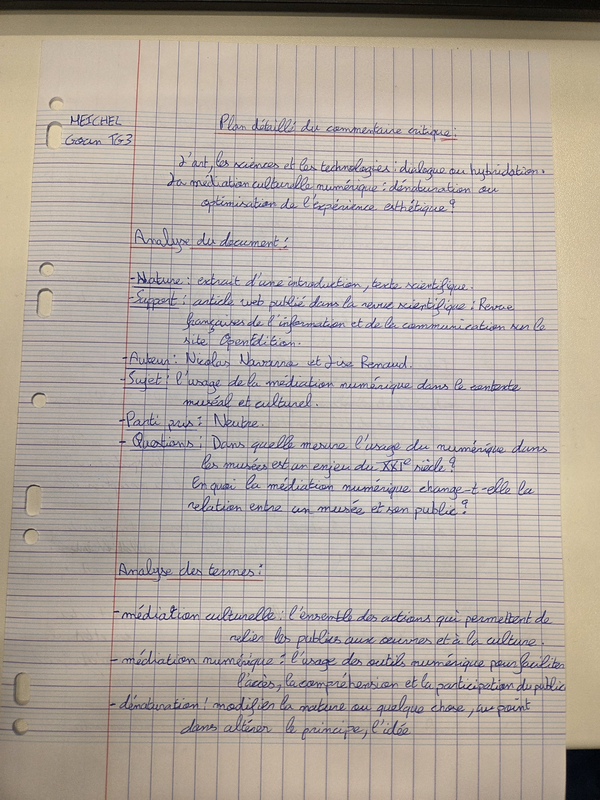 MEICHEL
Goan TG3
Plan détaillé du commentaire critique :
L'art, les sciences et les technologies : dialogue ou hybridation.
La médiation culturelle numérique : dénaturation ou
optimisation de l'expérience esthétique ?
Analyse du document :
- Nature : extrait d'une introduction, texte scientifique.
- Support : article web publié dans la revue scientifique : Revue
françaises de l'information et de la communication sur le
site OpenEdition.
- Auteur : Nicolas Navarro et Lise Renaud.
- Sujet : l'usage de la médiation numérique dans le contexte
muséal et culturel.
- Parti pris : Neutre.
- Questions : Dans quelle mesure l'usage du numérique dans
les musées est un enjeu du XXIe siècle ?
En quoi la médiation numérique change-t-elle la
relation entre un musée et son public ?
Analyse des termes :
- médiation culturelle : l'ensemble des actions qui permettent de
relier les publics aux œuvres et à la culture.
- médiation numérique : l'usage des outils numérique pour faciliter
l'accès, la compréhension et la participation du public
- dénaturation : modifier la nature ou quelque chose, au point
dans altérer le principe, l'idée